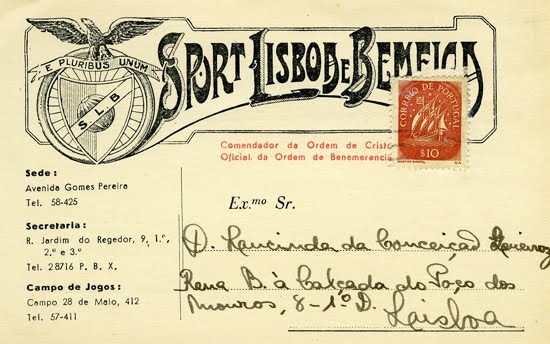 E PLURIBUS UNUM
S. L. B.
SPORT LISBOA E BEMFICA
CORREIO DE PORTUGAL
$10
Comendador da Ordem de Cristo
Oficial da Ordem de Benemerencia
Sede :
Avenida Gomes Pereira
Tel. 58-425
Secretaria :
R. Jardim do Regedor, 9, 1.º,
2.º e 3.º
Tel. 28716 P. B. X.
Campo de Jogos :
Campo 28 de Maio, 412
Tel. 57-411
Ex.mo Sr.
D. Laucinda da Conceição
Rua B. à Calçada do Poço dos
Mouros, 8-1º D. Lisboa